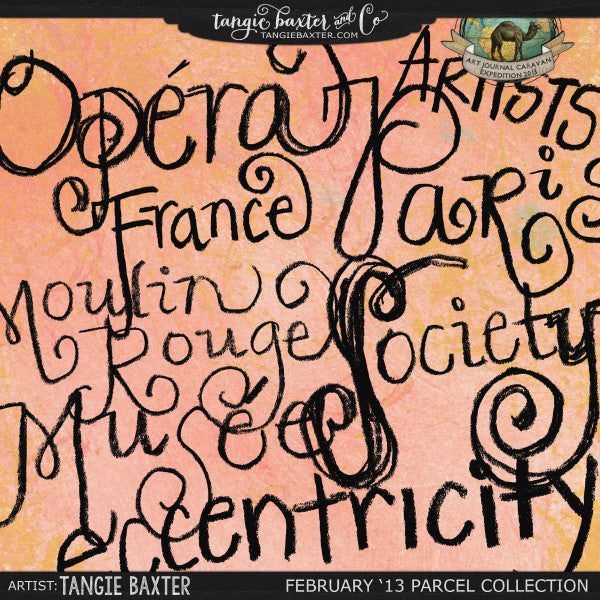 tangie baxter and Co
TANGIEBAXTER.COM
ART JOURNAL CARAVAN
EXPEDITION 2013
ARTISTS
Opéra
Paris
France
Moulin
Rouge
Society
Musée
eccentricity
ARTIST: TANGIE BAXTER
FEBRUARY '13 PARCEL COLLECTION